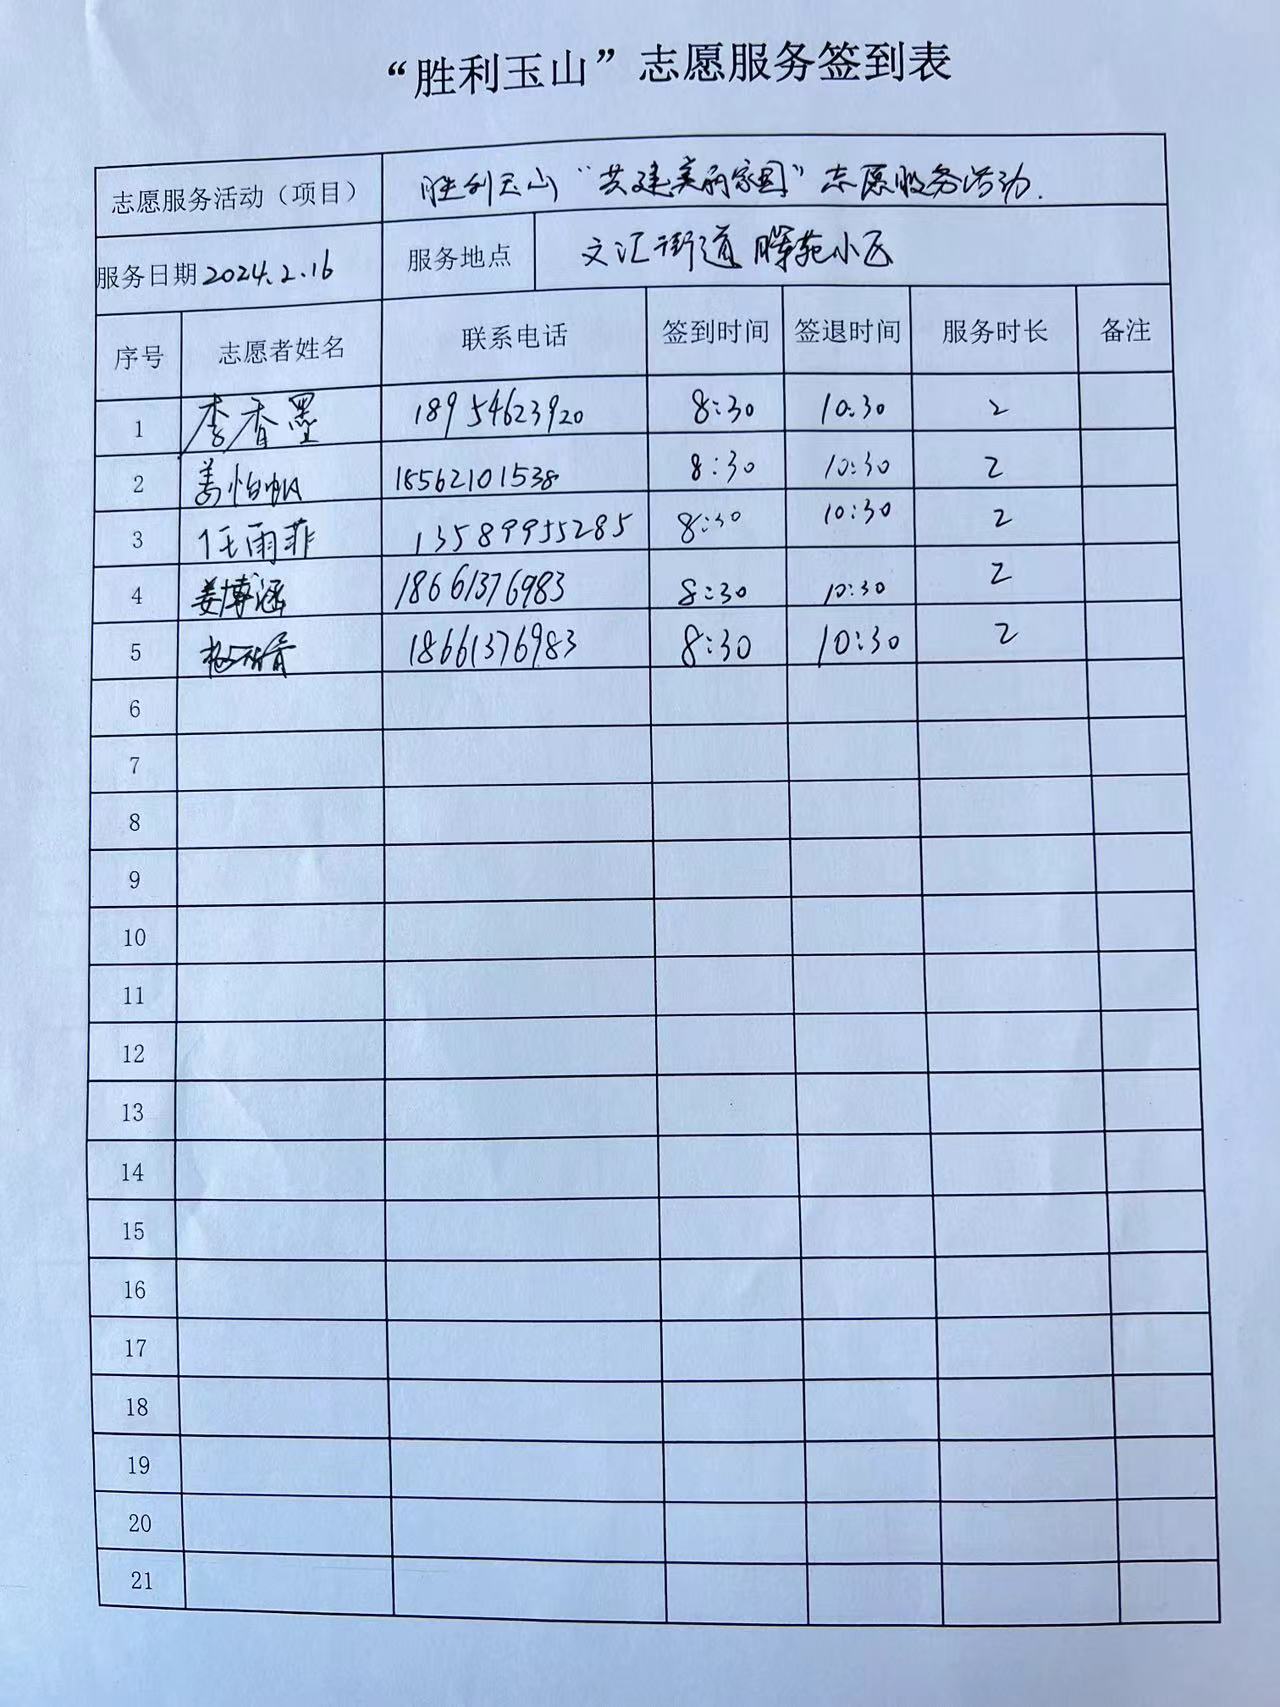 “胜利玉山”志愿服务签到表
志愿服务活动（项目） 胜利玉山“共建美丽家园”志愿服务活动.
服务日期 2024.2.16 服务地点 文汇街道 晖苑小区
序号 志愿者姓名 联系电话 签到时间 签退时间 服务时长 备注
1 李香墨 18954623920 8:30 10:30 2
2 姜怡帆 18562101538 8:30 10:30 2
3 任雨菲 13589955285 8:30 10:30 2
4 姜博涵 18661376983 8:30 10:30 2
5 18661376983 8:30 10:30 2
6
7
8
9
10
11
12
13
14
15
16
17
18
19
20
21